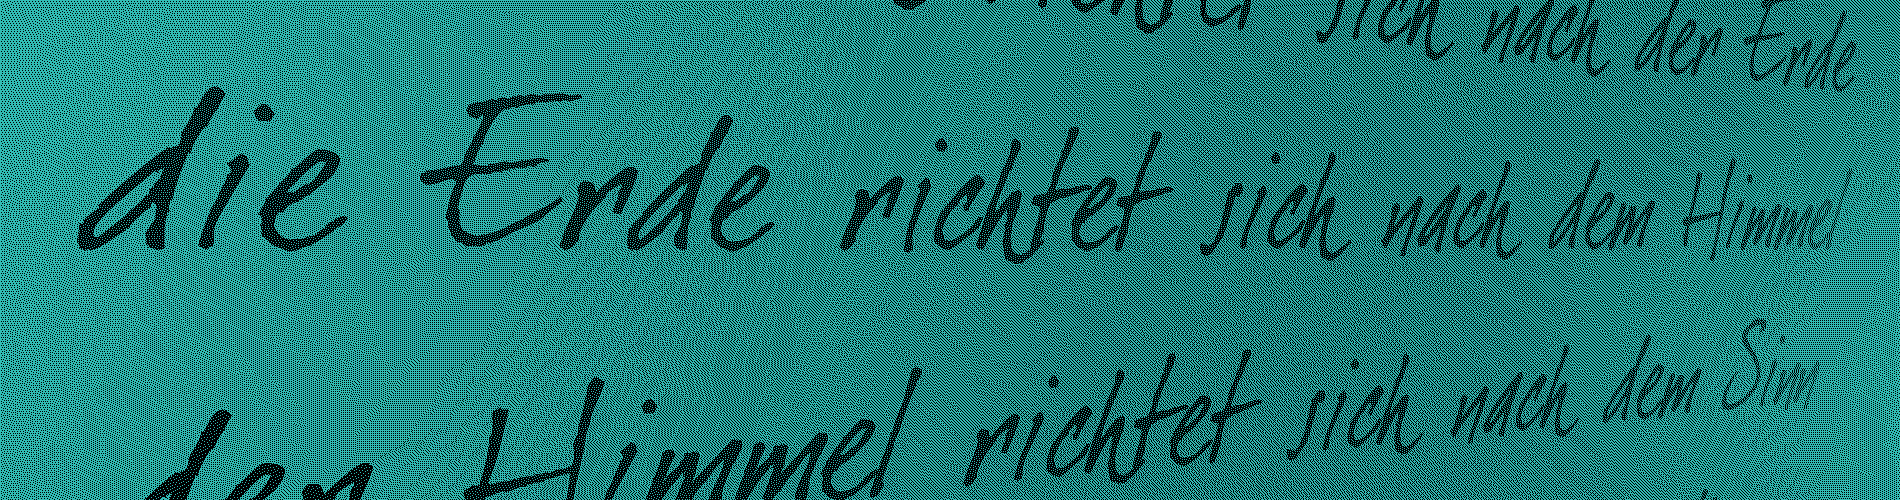 richtet sich nach der Erde
die Erde richtet sich nach dem Himmel
der Himmel richtet sich nach dem Sinn